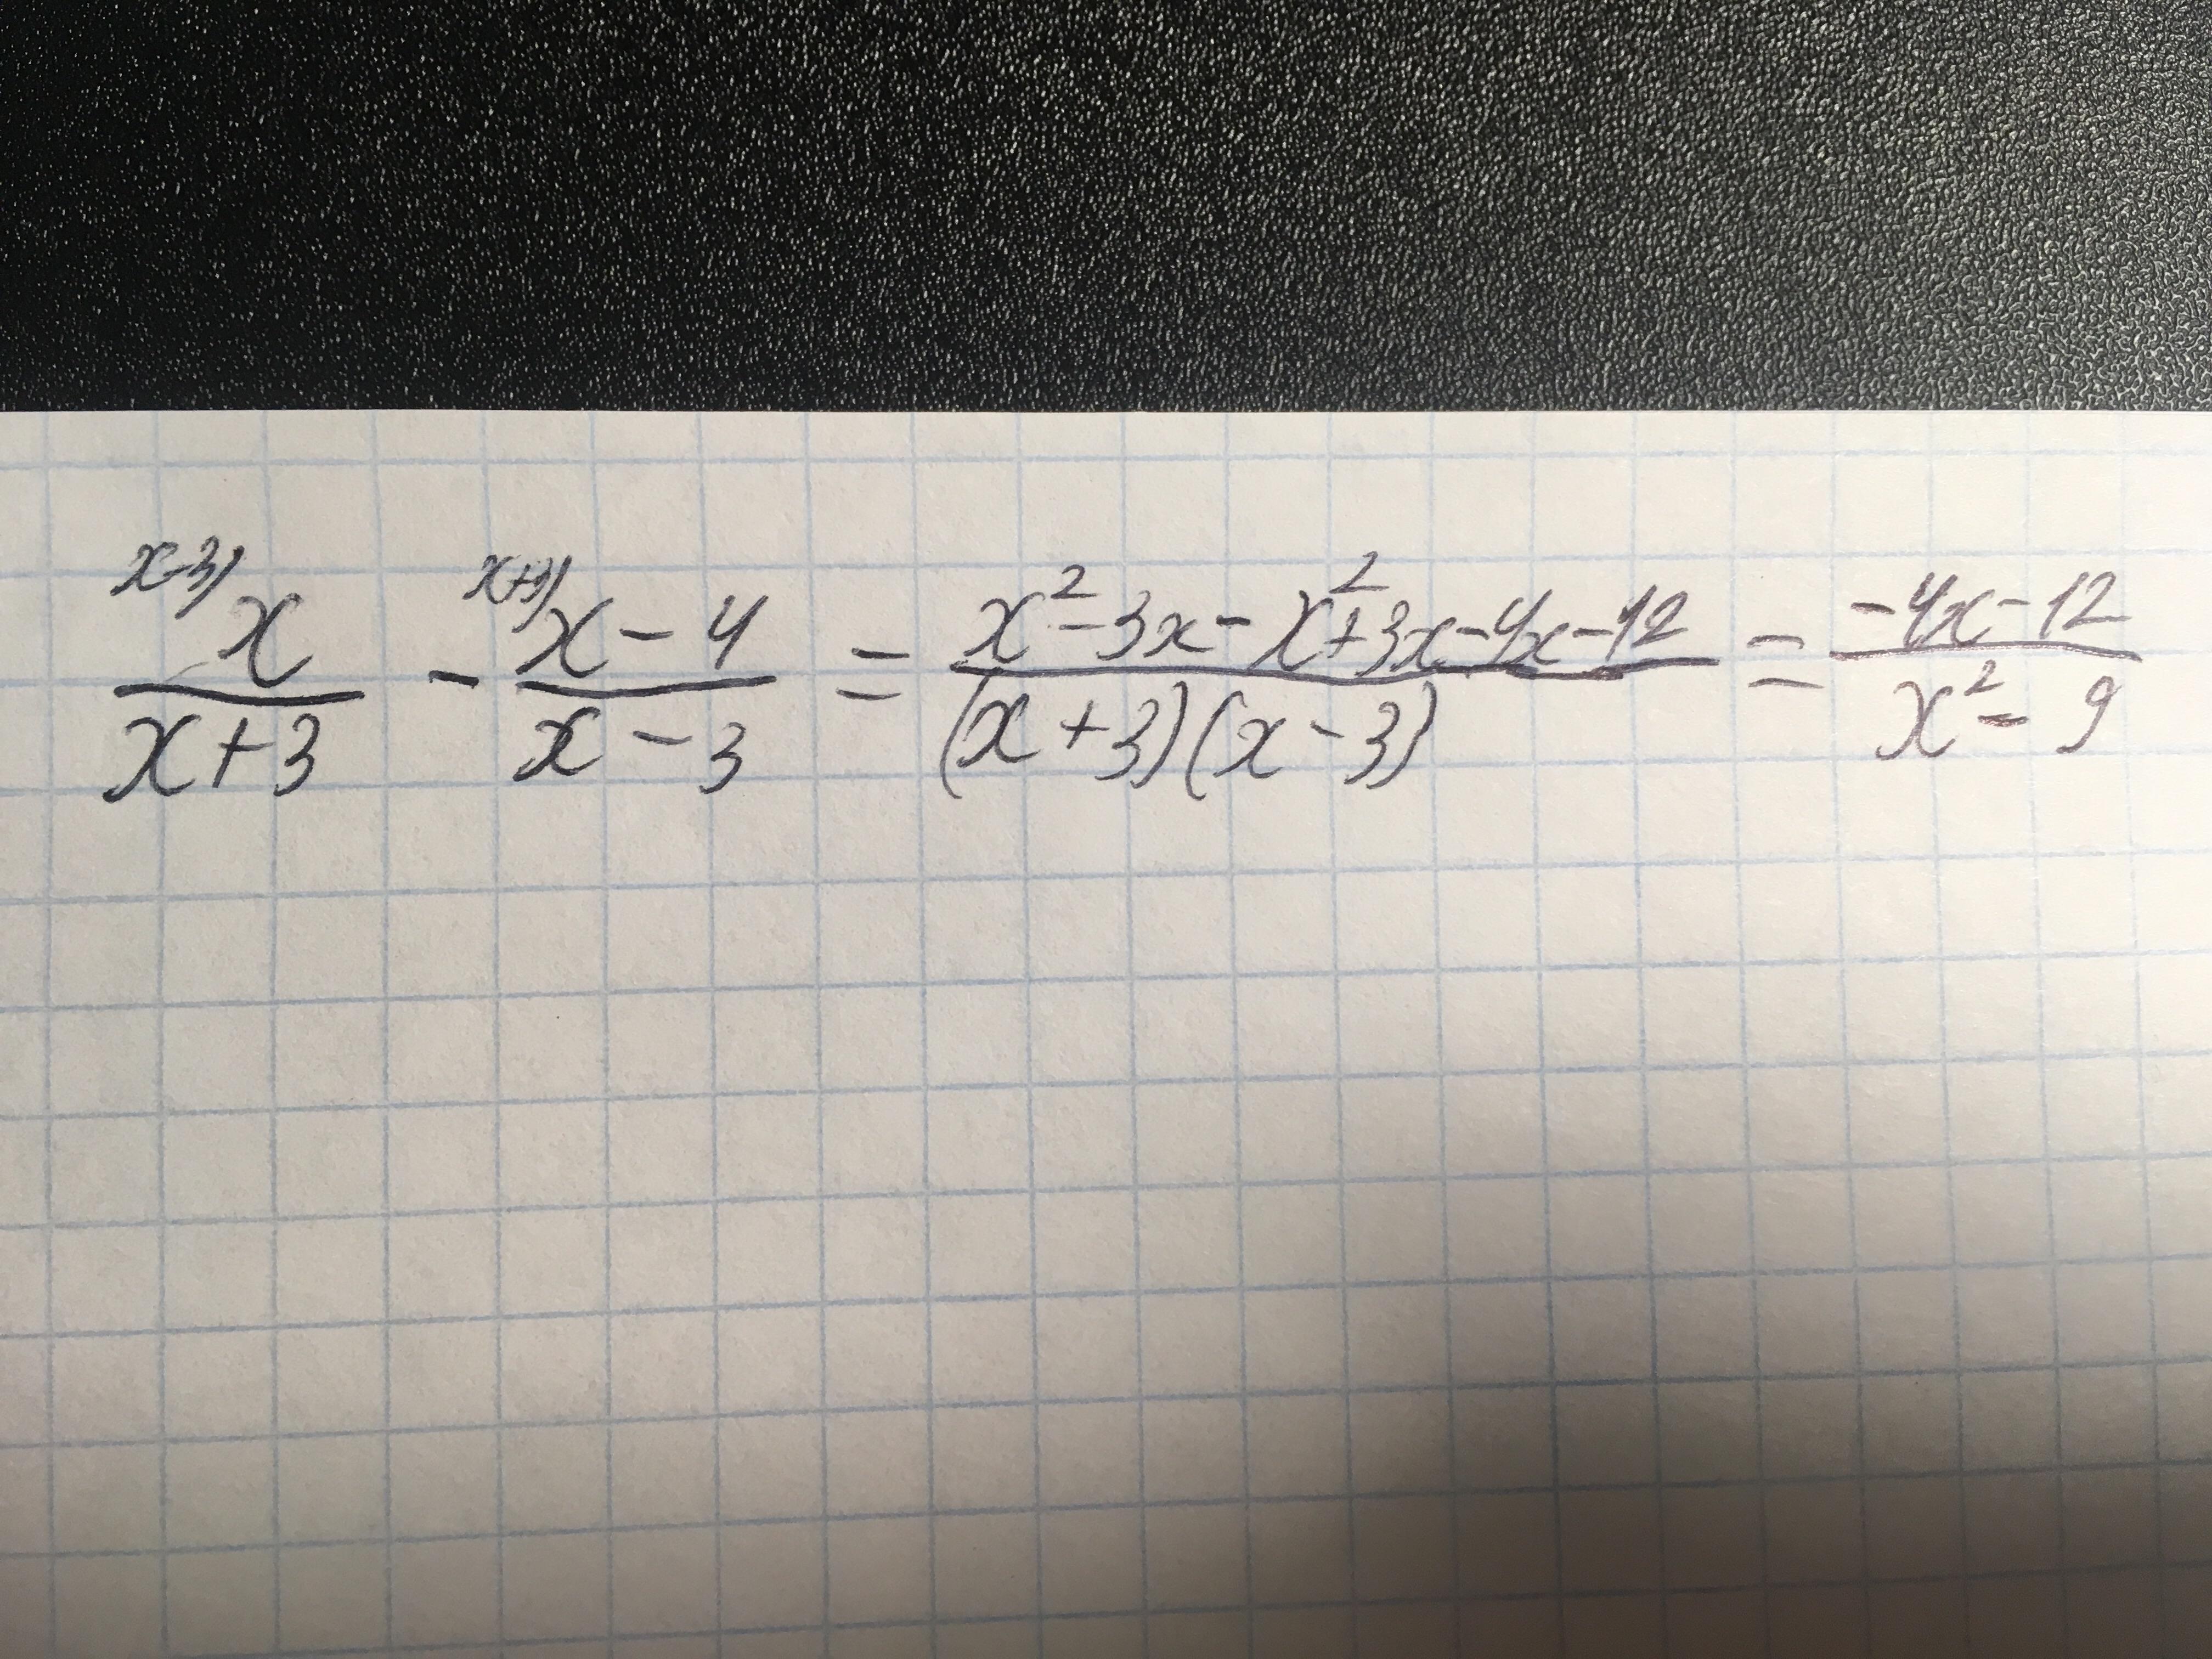 x-3) x / x+3 - x+3) x-4 / x-3 = x²-3x-x²+3x-4x-12 / (x+3)(x-3) = -4x-12 / x²-9